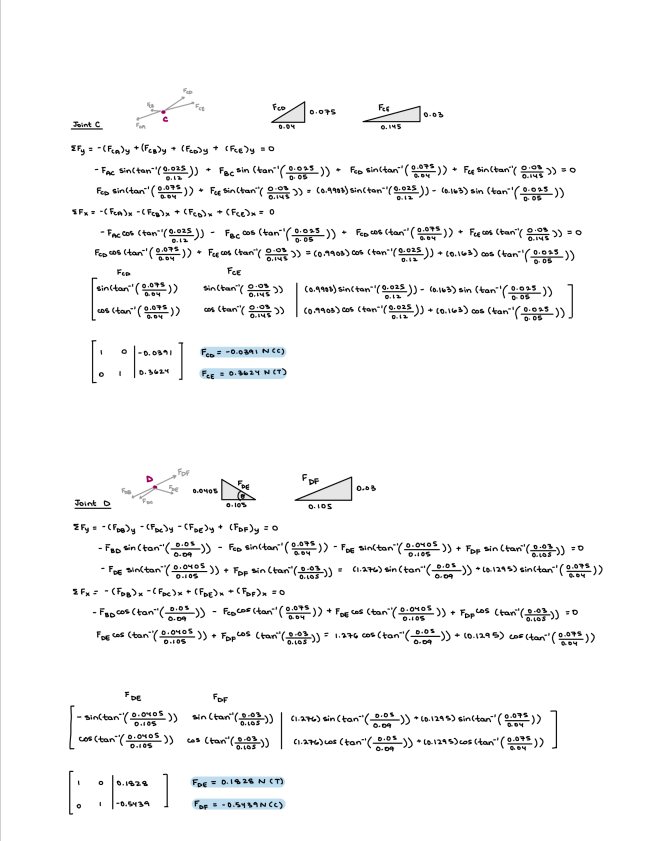 Joint C
F_CB
F_CD
F_CE
F_CA
C
F_CD
0.075
0.04
F_CE
0.03
0.145
ΣFy = -(F_CA)y + (F_CB)y + (F_CD)y + (F_CE)y = 0
- F_AC sin(tan⁻¹(0.025/0.12)) + F_BC sin(tan⁻¹(0.025/0.05)) + F_CD sin(tan⁻¹(0.075/0.04)) + F_CE sin(tan⁻¹(0.03/0.145)) = 0
F_CD sin(tan⁻¹(0.075/0.04)) + F_CE sin(tan⁻¹(0.03/0.145)) = (0.9903)sin(tan⁻¹(0.025/0.12)) - (0.163) sin(tan⁻¹(0.025/0.05))
ΣFx = -(F_CA)x - (F_CB)x + (F_CD)x + (F_CE)x = 0
- F_AC cos(tan⁻¹(0.025/0.12)) - F_BC cos(tan⁻¹(0.025/0.05)) + F_CD cos(tan⁻¹(0.075/0.04)) + F_CE cos(tan⁻¹(0.03/0.145)) = 0
F_CD cos(tan⁻¹(0.075/0.04)) + F_CE cos(tan⁻¹(0.03/0.145)) = (0.9903) cos(tan⁻¹(0.025/0.12)) + (0.163) cos(tan⁻¹(0.025/0.05))
F_CD F_CE
sin(tan⁻¹(0.075/0.04)) sin(tan⁻¹(0.03/0.145)) | (0.9903)sin(tan⁻¹(0.025/0.12)) - (0.163) sin(tan⁻¹(0.025/0.05))
cos(tan⁻¹(0.075/0.04)) cos(tan⁻¹(0.03/0.145)) | (0.9903)cos(tan⁻¹(0.025/0.12)) + (0.163) cos(tan⁻¹(0.025/0.05))
1 0 | -0.0391 F_CD = -0.0391 N (C)
0 1 | 0.3624 F_CE = 0.3624 N (T)
Joint D
D
F_DF
F_DB
F_DC
F_DE
0.0405
F_DE
θ
0.105
F_DF
0.03
0.105
ΣFy = -(F_DB)y - (F_DC)y - (F_DE)y + (F_DF)y = 0
- F_BD sin(tan⁻¹(0.05/0.09)) - F_CD sin(tan⁻¹(0.075/0.04)) - F_DE sin(tan⁻¹(0.0405/0.105)) + F_DF sin(tan⁻¹(0.03/0.105)) = 0
- F_DE sin(tan⁻¹(0.0405/0.105)) + F_DF sin(tan⁻¹(0.03/0.105)) = (1.276) sin(tan⁻¹(0.05/0.09)) + (0.1295) sin(tan⁻¹(0.075/0.04))
ΣFx = -(F_DB)x - (F_DC)x + (F_DE)x + (F_DF)x = 0
- F_BD cos(tan⁻¹(0.05/0.09)) - F_CD cos(tan⁻¹(0.075/0.04)) + F_DE cos(tan⁻¹(0.0405/0.105)) + F_DF cos(tan⁻¹(0.03/0.105)) = 0
F_DE cos(tan⁻¹(0.0405/0.105)) + F_DF cos(tan⁻¹(0.03/0.105)) = 1.276 cos(tan⁻¹(0.05/0.09)) + (0.1295) cos(tan⁻¹(0.075/0.04))
F_DE F_DF
- sin(tan⁻¹(0.0405/0.105)) sin(tan⁻¹(0.03/0.105)) | (1.276) sin(tan⁻¹(0.05/0.09)) + (0.1295) sin(tan⁻¹(0.075/0.04))
cos(tan⁻¹(0.0405/0.105)) cos(tan⁻¹(0.03/0.105)) | (1.276) cos(tan⁻¹(0.05/0.09)) + (0.1295) cos(tan⁻¹(0.075/0.04))
1 0 | 0.1828 F_DE = 0.1828 N (T)
0 1 | -0.5439 F_DF = -0.5439 N (C)